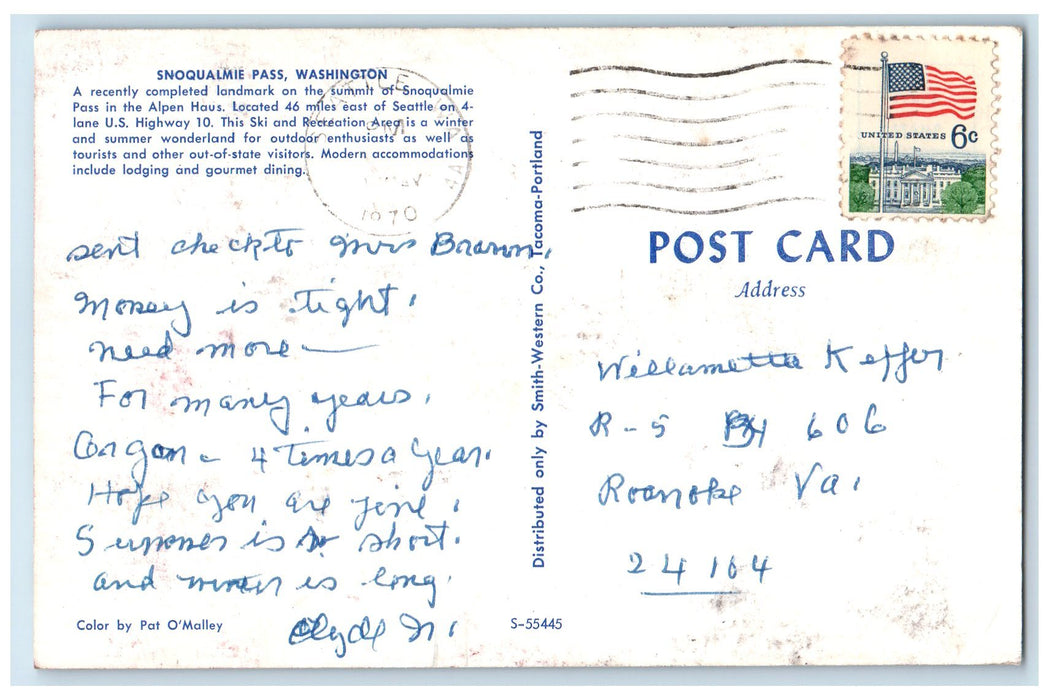 SNOQUALMIE PASS, WASHINGTON
A recently completed landmark on the summit of Snoqualmie
Pass in the Alpen Haus. Located 46 miles east of Seattle on 4-
lane U.S. Highway 10. This Ski and Recreation Area is a winter
and summer wonderland for outdoor enthusiasts as well as
tourists and other out-of-state visitors. Modern accommodations
include lodging and gourmet dining.
PM
1970
sent check to Mrs
Money is tight.
need more —
For many years.
4 Times a year.
Hope you are fine.
Summer is so short.
and winter is long.
Clyde N.
Color by Pat O'Malley
S-55445
Distributed only by Smith-Western Co., Tacoma-Portland
UNITED STATES 6c
POST CARD
Address
Willametta Keffer
R-5 BX 606
Roanoke Va.
24104